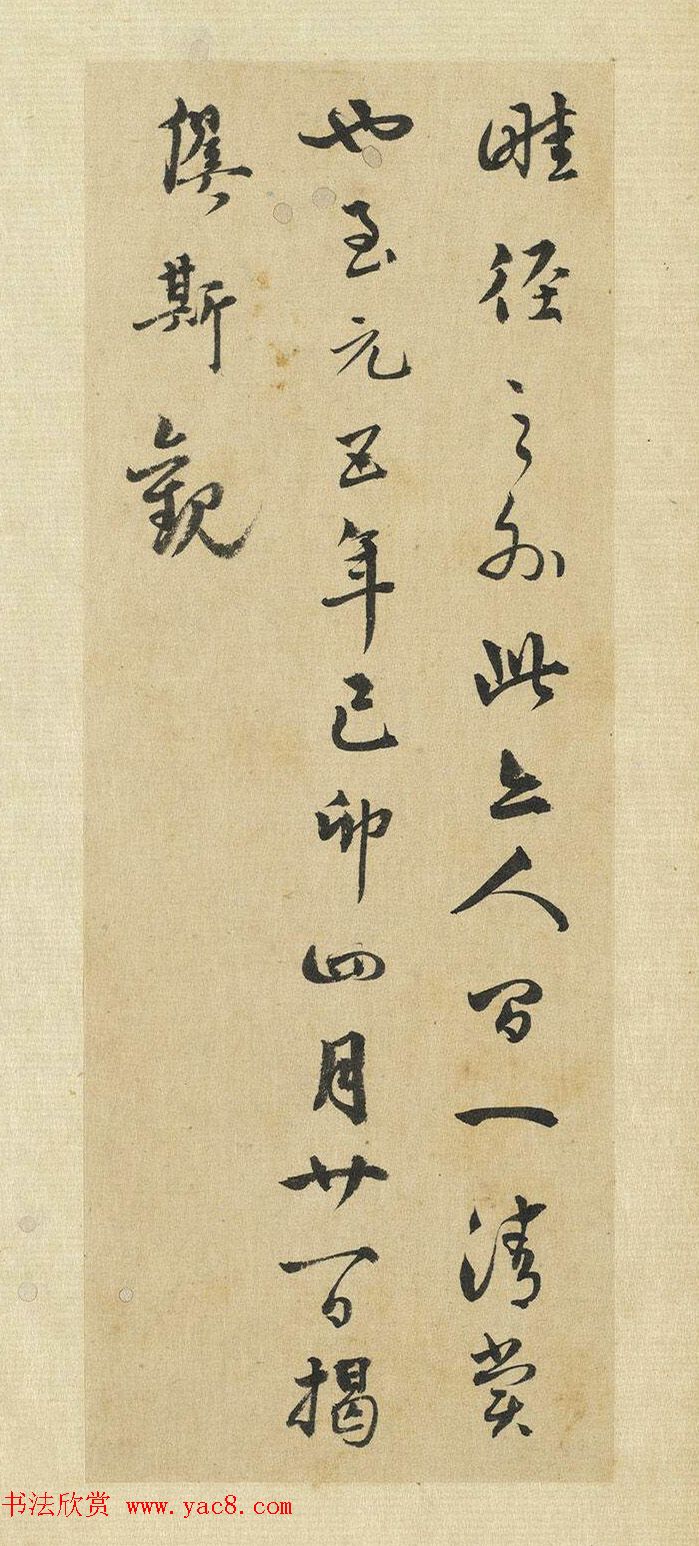 畦径之外此亦人间一清赏
也至元五年己卯四月廿一日揭
傒斯观
书法欣赏 www.yac8.com